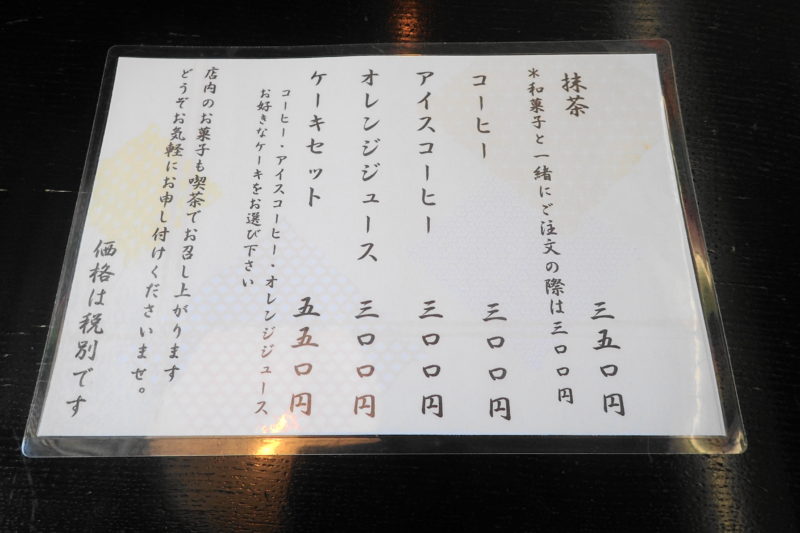 抹茶 三五〇円
＊和菓子と一緒にご注文の際は三〇〇円
コーヒー 三〇〇円
アイスコーヒー 三〇〇円
オレンジジュース 三〇〇円
ケーキセット 五五〇円
コーヒー・アイスコーヒー・オレンジジュース
お好きなケーキをお選び下さい
店内のお菓子も喫茶でお召し上がります
どうぞお気軽にお申し付けくださいませ。
価格は税別です